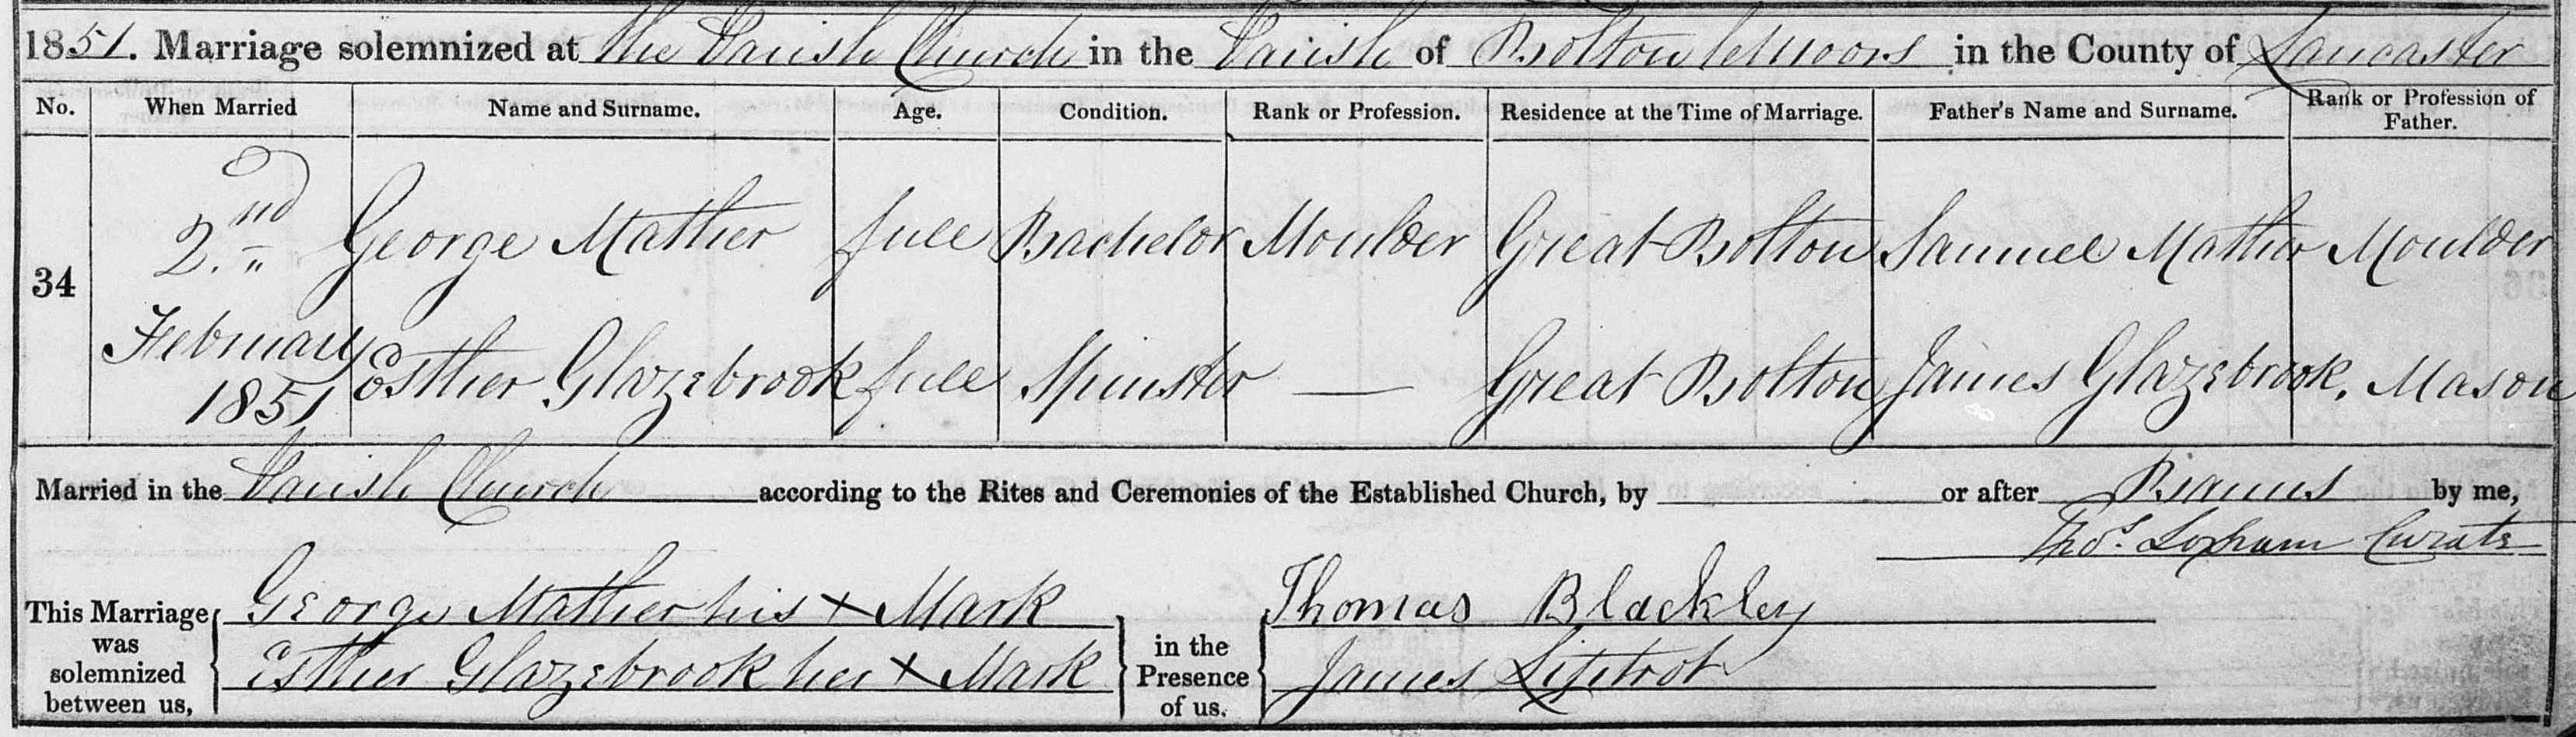 1851. Marriage solemnized at the Parish Church in the Parish of Bolton le Moors in the County of Lancaster
No. When Married Name and Surname. Age. Condition. Rank or Profession. Residence at the Time of Marriage. Father's Name and Surname. Rank or Profession of Father.
34 2nd George Mather full Bachelor Moulder Great Bolton Samuel Mather Moulder
February 1851 Esther Glazebrook full Spinster — Great Bolton James Glazebrook, Mason
Married in the Parish Church according to the Rites and Ceremonies of the Established Church, by or after Banns by me,
Thos. Loxham Curate
This Marriage was solemnized between us, George Mather his x Mark
Esther Glazebrook her x Mark
in the Presence of us. Thomas Blackley
James